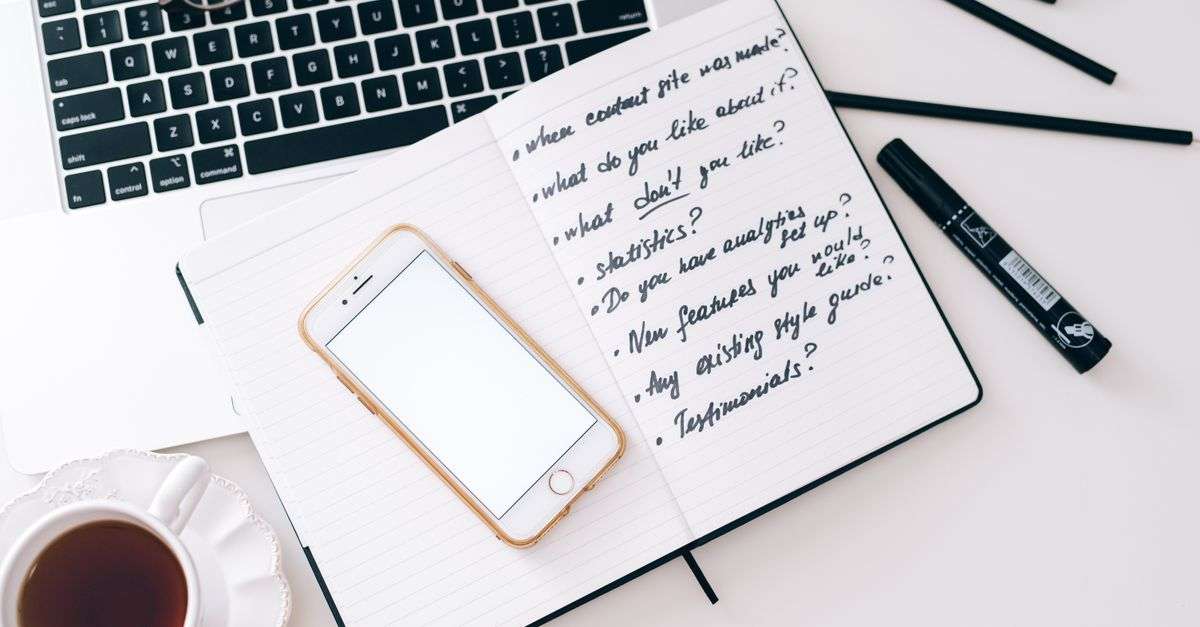 esc
~ 1 2 4 5 6 7 8 9 0 return
tab Q W E R T Y U I O P
caps lock A S D F G H J K L
shift Z X C V B N M < > ?
fn control option command ⌘
• when content site was made?
• what do you like about it?
• what don't you like?
• statistics?
• Do you have analytics
set up?
• New features you would
like?
• Any existing style guide?
• Testimonials?